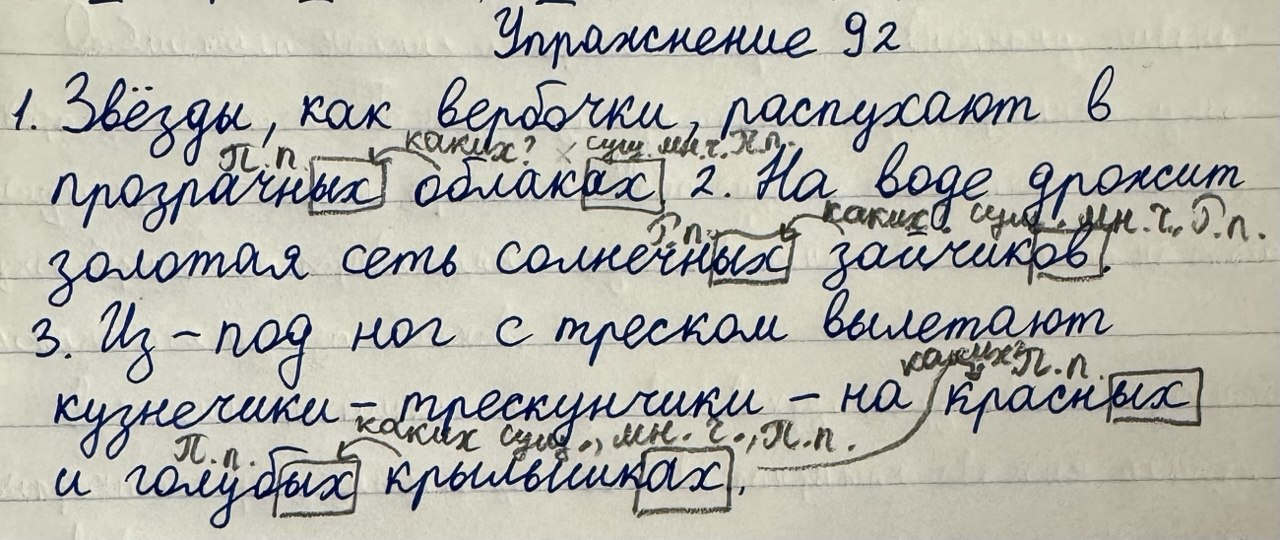 Упражнение 92
1. Звёзды, как вербочки, распухают в
П.п. каких? сущ. мн.ч. П.п.
прозрачных облаках. 2. На воде дрожит
Р.п. каких? сущ., мн.ч., Р.п.
золотая сеть солнечных зайчиков.
3. Из-под ног с треском вылетают
каких? П.п.
кузнечики – трескунчики – на красных
П.п. каких сущ., мн.ч., П.п.
и голубых крылышках.